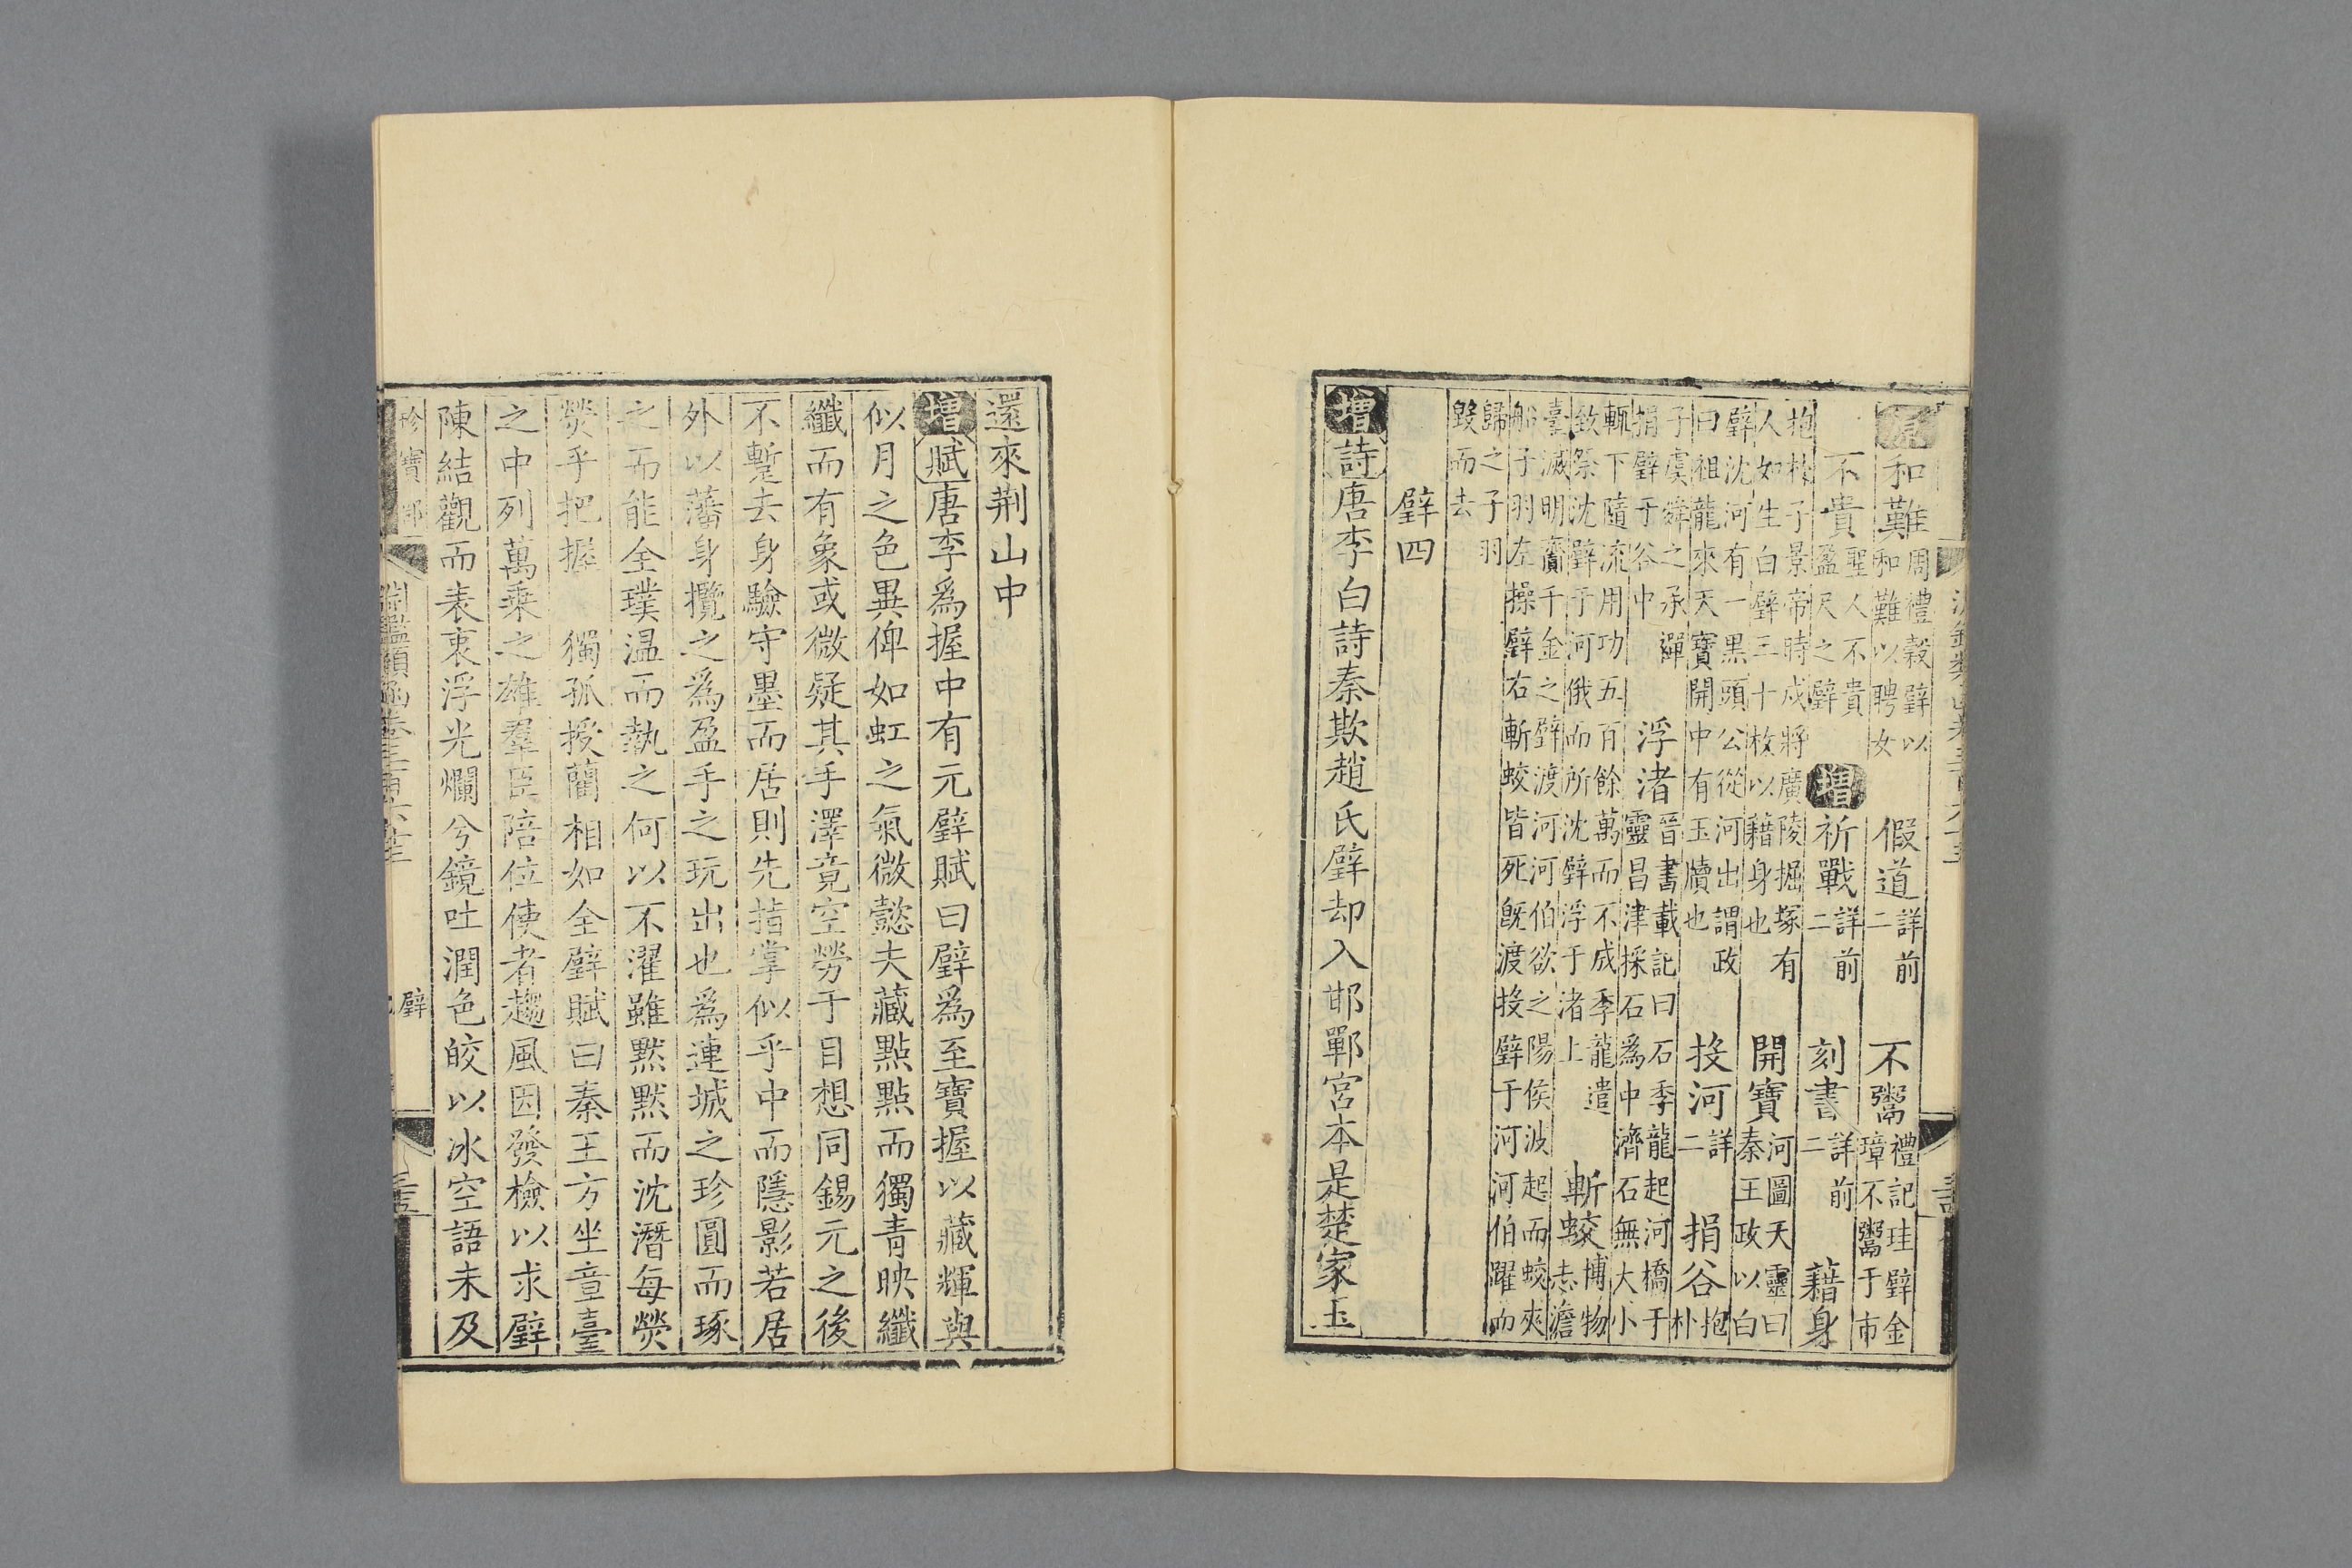 原和難周禮穀璧以和難以聘女 假道詳前二 不鬻禮記珪璧金璋不鬻于市
不貴聖人不貴盈尺之璧 增祈戰詳前二 刻書詳前二 藉身
抱朴子景帝時戍將廣陵掘塚有人如生白璧三十枚以藉身也 開寶河圖天靈曰秦王政以白
璧沈河有一黑頭公從河出謂政曰祖龍來天寶開中有玉牘也 投河詳二 捐谷抱朴
子虞舜之承禪捐璧于谷中 浮渚晉書載記曰石季龍起河橋于靈昌津採石為中濟石無大小
輒下隨流用功五百餘萬而不成季龍遣致祭沈璧于河俄而所沈璧浮于渚上 斬蛟博物志澹
臺滅明齎千金之璧渡河河伯欲之陽侯波起而蛟夾船子羽左操璧右斬蛟皆死旣渡投璧于河河伯躍而
歸之子羽毀而去
璧四
增詩唐李白詩秦欺趙氏璧却入邯鄲宮本是楚家玉
還來荆山中
增賦唐李爲握中有元璧賦曰璧爲至寶握以藏輝與
似月之色異俾如虹之氣微懿夫藏點點而獨青映纖
纖而有象或微疑其手澤竟空勞于目想同錫元之後
不蹔去身驗守墨而居則先指掌似乎中而隱影若居
外以藩身攬之爲盈手之玩出也爲連城之珍圓而琢
之而能全璞温而執之何以不濯雖默默而沈潛每熒
熒乎把握 獨孤授藺相如全璧賦曰秦王方坐章臺
之中列萬乘之雄羣臣陪位使者趨風因發檢以求璧
陳結觀而表衷浮光爛兮鏡吐潤色皎以冰空語未及
珍寶部 璧